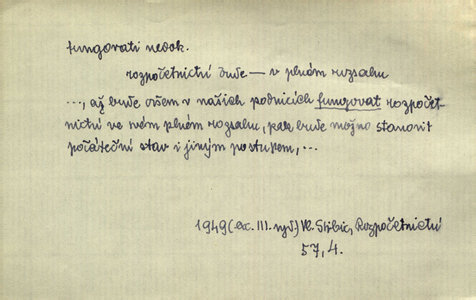 fungovati nedok.
rozpočetnictví bude — v plném rozsahu
..., až bude ovšem v našich podnicích fungovat rozpočet-
nictví ve svém plném rozsahu, pak bude možno stanovit
počáteční stav i jiným postupem, ...
1949 (ex. III. vyd) Vl. Stibic, Rozpočetnictví
57, 4.